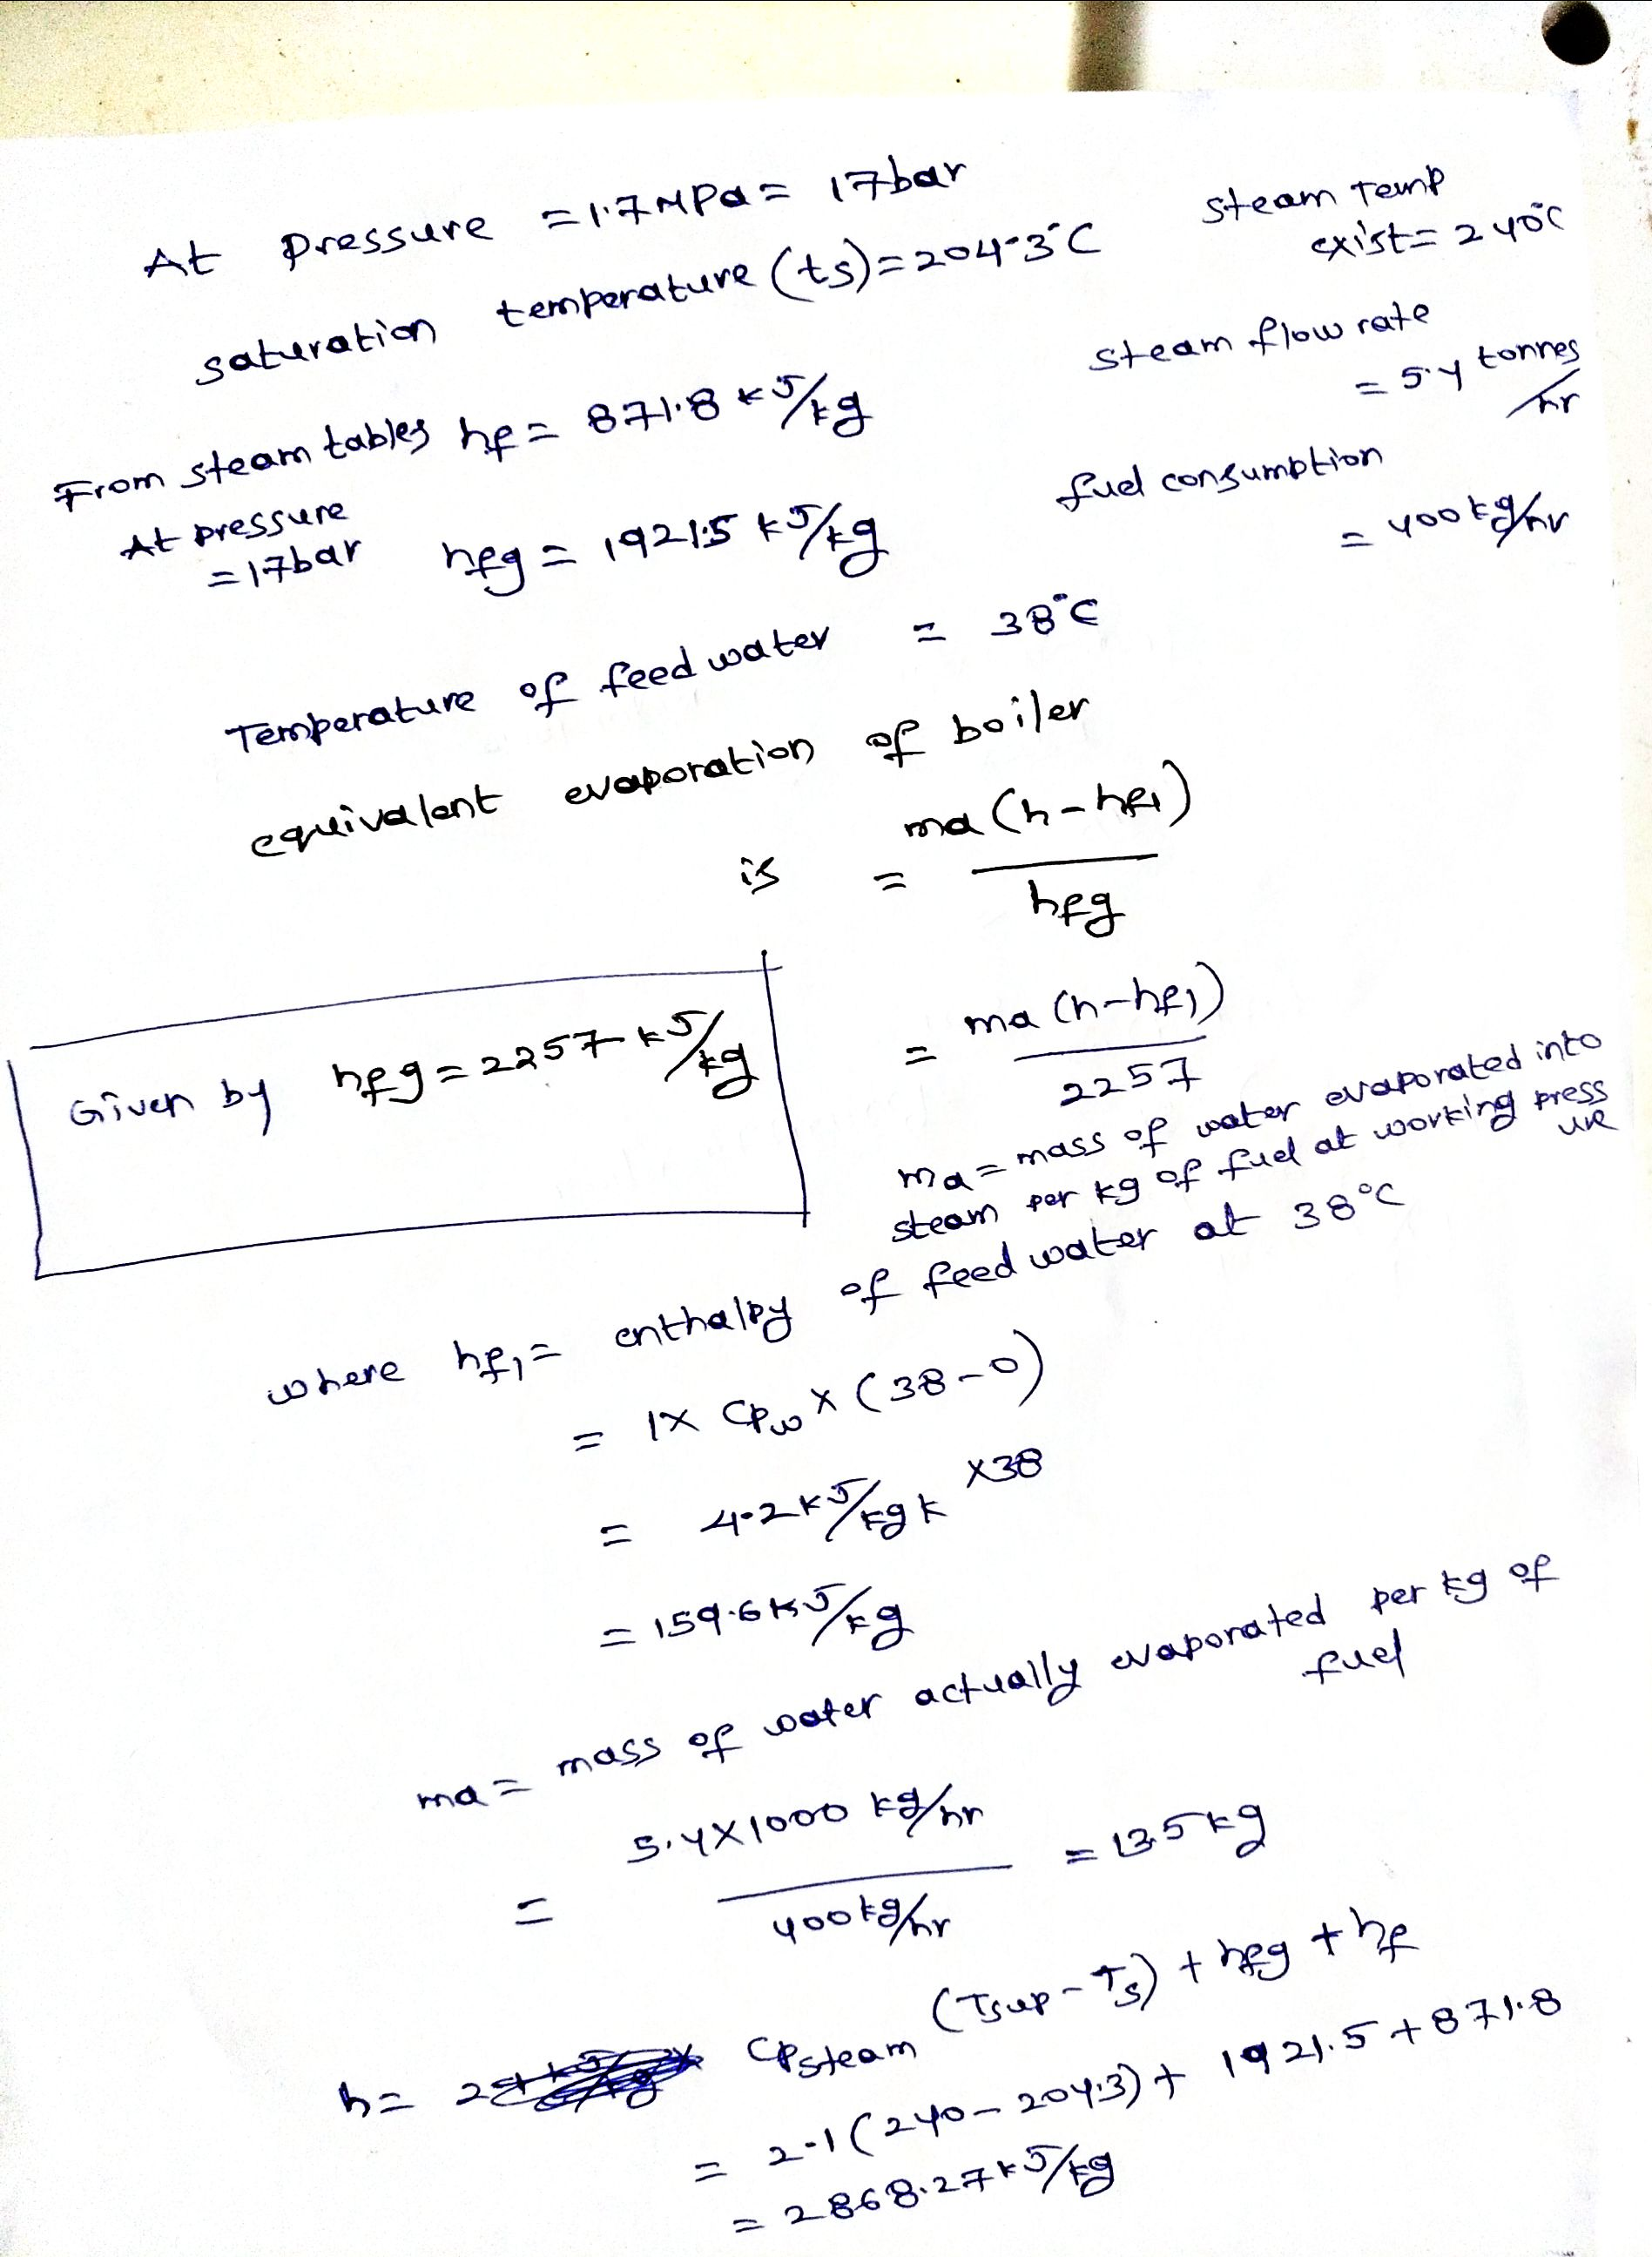 At Pressure = 1.7 MPa = 17bar
saturation temperature (ts) = 204.3°C
steam Temp
exist = 240°C
From steam tables hf = 871.8 kJ/kg
At pressure
= 17bar
hfg = 1921.5 kJ/kg
steam flow rate
= 5.4 tonnes
/hr
fuel consumption
= 400 kg/hr
Temperature of feed water = 38°C
equivalent evaporation of boiler
is = ma (h - hf1)
hfg
= ma (h - hf1)
2257
Given by hfg = 2257 kJ/kg
ma = mass of water evaporated into
steam per kg of fuel at working press
ure
where hf1 = enthalpy of feed water at 38°C
= 1 × Cpw × (38 - 0)
= 4.2 kJ/kg k × 38
= 159.6 kJ/kg
ma = mass of water actually evaporated per kg of
fuel
= 5.4 × 1000 kg/hr
400 kg/hr
= 13.5 kg
h = Cpsteam (Tsup - Ts) + hfg + hf
= 2.1 (240 - 204.3) + 1921.5 + 871.8
= 2868.27 kJ/kg